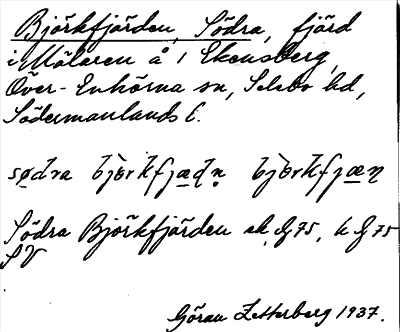 Björkfjärden, Södra, fjärd
i Mälaren å 1 Ekensberg,
Över-Enhörna sn, Selebo hd,
Södermanlands l.
södra bjèrkfjæḍṇ bjèrkfjæṇ
Södra Björkfjärden ek G75, k G75
SV
Göran Zetterberg 1937.